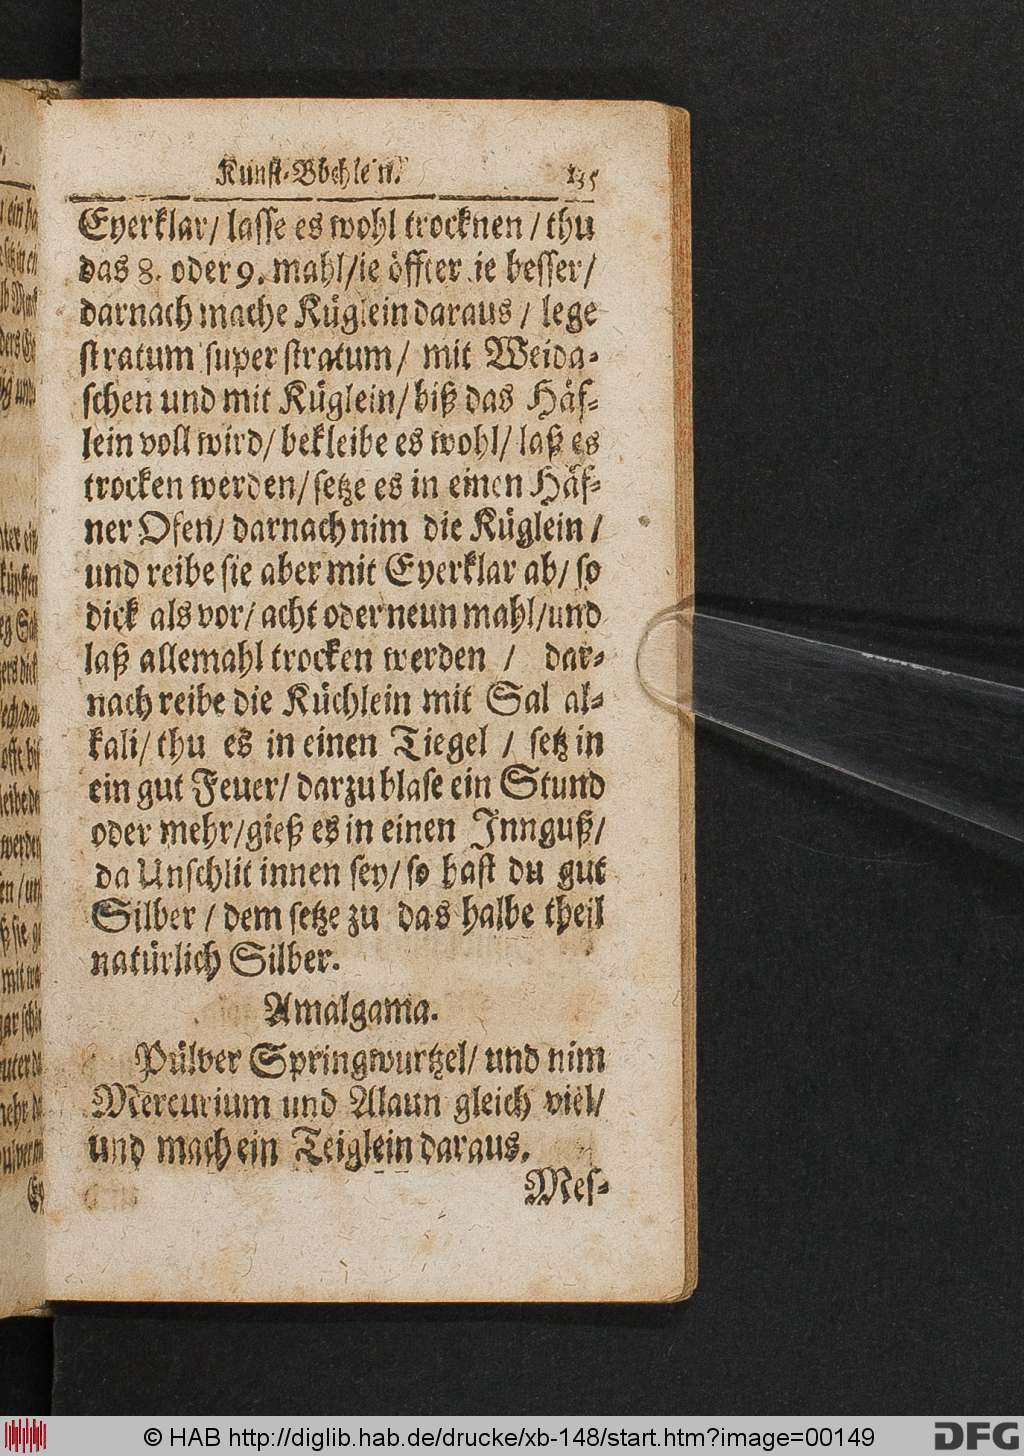 Kunst-Büchlein. 135
Eyerklar/ lasse es wohl trocknen / thu
das 8. oder 9. mahl/ie öffter ie besser/
darnach mache Küglein daraus / lege
stratum super stratum/ mit Weida-
schen und mit Küglein/ biß das Häf-
lein voll wird/ bekleibe es wohl/ laß es
trocken werden/ setze es in einen Häf-
ner Ofen/ darnach nim die Küglein /
und reibe sie aber mit Eyerklar ab/ so
dick als vor/ acht oder neun mahl/und
laß allemahl trocken werden / dar-
nach reibe die Küchlein mit Sal al-
kali/ thu es in einen Tiegel / setz in
ein gut Feuer/ darzu blase ein Stund
oder mehr/gieß es in einen Innguß/
da Unschlit innen sey/ so hast du gut
Silber / dem setze zu das halbe theil
natürlich Silber.
Amalgama.
Pülver Springwurtzel/ und nim
Mercurium und Alaun gleich viel/
und mach ein Teiglein daraus.
Mes-
© HAB http://diglib.hab.de/drucke/xb-148/start.htm?image=00149
DFG